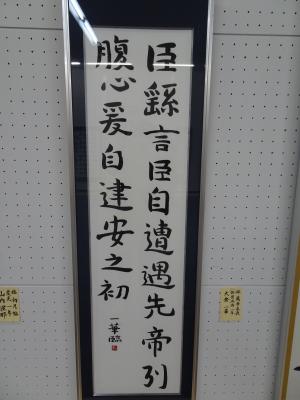 臣繇言臣自遭遇先帝列
腹心爰自建安之初
一華臨